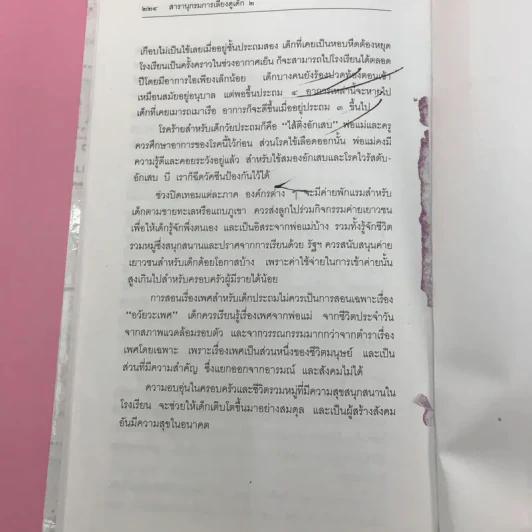 ๒๒๔ สารานุกรมการเลี้ยงดูเด็ก ๒
เกือบไม่เป็นไข้เลยเมื่ออยู่ชั้นประถมสอง เด็กที่เคยเป็นหอบหืดต้องหยุด
โรงเรียนเป็นครั้งคราวในช่วงอากาศเย็น ก็จะสามารถไปโรงเรียนได้ตลอด
ปีโดยมีอาการไอเพียงเล็กน้อย เด็กบางคนยังร้องปวดท้องตอนเช้า
เหมือนสมัยอยู่อนุบาล แต่พอขึ้นประถม ๔ อาการเหล่านี้จะหายไป
เด็กที่เคยเมารถเมาเรือ อาการก็จะดีขึ้นเมื่ออยู่ประถม ๓ ขึ้นไป
โรคร้ายสำหรับเด็กวัยประถมก็คือ “ไส้ติ่งอักเสบ” พ่อแม่และครู
ควรศึกษาอาการของโรคนี้ไว้ก่อน ส่วนโรคไข้เลือดออกนั้น พ่อแม่คงมี
ความรู้ดีและคอยระวังอยู่แล้ว สำหรับไข้สมองอักเสบและโรคไวรัสตับ-
อักเสบ บี เราก็ฉีดวัคซีนป้องกันไว้ได้
ช่วงปิดเทอมแต่ละภาค องค์กรต่าง ๆ จะมีค่ายพักแรมสำหรับ
เด็กตามชายทะเลหรือแถบภูเขา ควรส่งลูกไปร่วมกิจกรรมค่ายเยาวชน
เพื่อให้เด็กรู้จักพึ่งตนเอง และเป็นอิสระจากพ่อแม่บ้าง รวมทั้งรู้จักชีวิต
รวมหมู่ซึ่งสนุกสนานและปราศจากการเรียนด้วย รัฐฯ ควรสนับสนุนค่าย
เยาวชนสำหรับเด็กด้อยโอกาสบ้าง เพราะค่าใช้จ่ายในการเข้าค่ายนั้น
สูงเกินไปสำหรับครอบครัวผู้มีรายได้น้อย
การสอนเรื่องเพศสำหรับเด็กประถมไม่ควรเป็นการสอนเฉพาะเรื่อง
“อวัยวะเพศ” เด็กควรเรียนรู้เรื่องเพศจากพ่อแม่ จากชีวิตประจำวัน
จากสภาพแวดล้อมรอบตัว และจากวรรณกรรมมากกว่าจากตำราเรื่อง
เพศโดยเฉพาะ เพราะเรื่องเพศเป็นส่วนหนึ่งของชีวิตมนุษย์ และเป็น
ส่วนที่มีความสำคัญ ซึ่งแยกออกจากอารมณ์ และสังคมไม่ได้
ความอบอุ่นในครอบครัวและชีวิตรวมหมู่ที่มีความสุขสนุกสนานใน
โรงเรียน จะช่วยให้เด็กเติบโตขึ้นมาอย่างสมดุล และเป็นผู้สร้างสังคม
อันมีความสุขในอนาคต